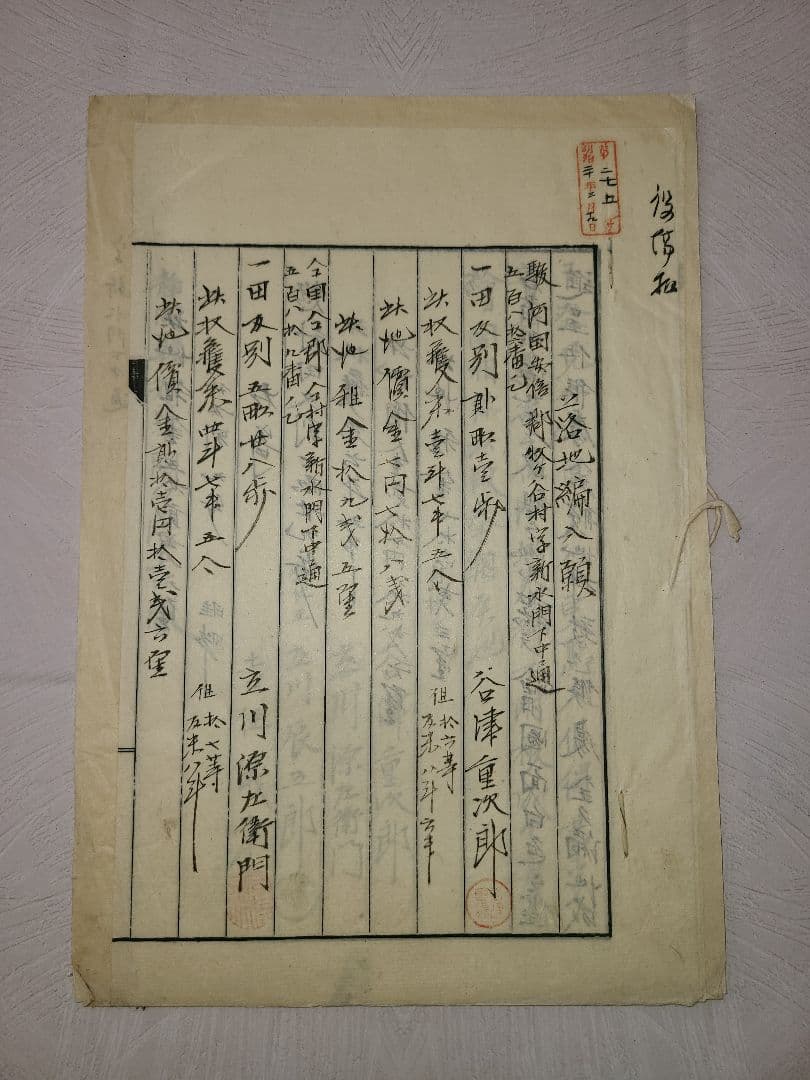 第二七五号
明治二十年二月九日
役場扣
落地編入願
駿河国安倍郡牧ケ谷村字新水門下中通
五百八拾番ノ乙
一田反別貳畝壹歩 谷津重次郎
此収穫米壹斗七升五合 但拾六等
反米八斗六升
此地價金七円七拾八戋
此地租金拾九戋五厘
仝国仝郡仝村字新水門下中通
五百八拾九番ノ乙
一田反別五畝廿八歩 立川源左衛門
此収穫米四斗七升五合 但拾七等
反米八斗
此地價金貳拾壱円拾壱戋六厘